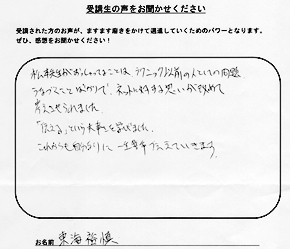 受講生の声をお聞かせください
受講された方のお声が、ますます磨きをかけて邁進していくためのパワーとなります。
ぜひ、感想をお聞かせください！
松本先生がおっしゃってることは、テクニック以前の人としての問題
うなづくことばかりで、ネットに対する思いが改めて
考えさせられました。
「伝える」という大事さを学びました。
これからも自分なりに一生けん命伝えていきます。
お名前 東海 裕慎